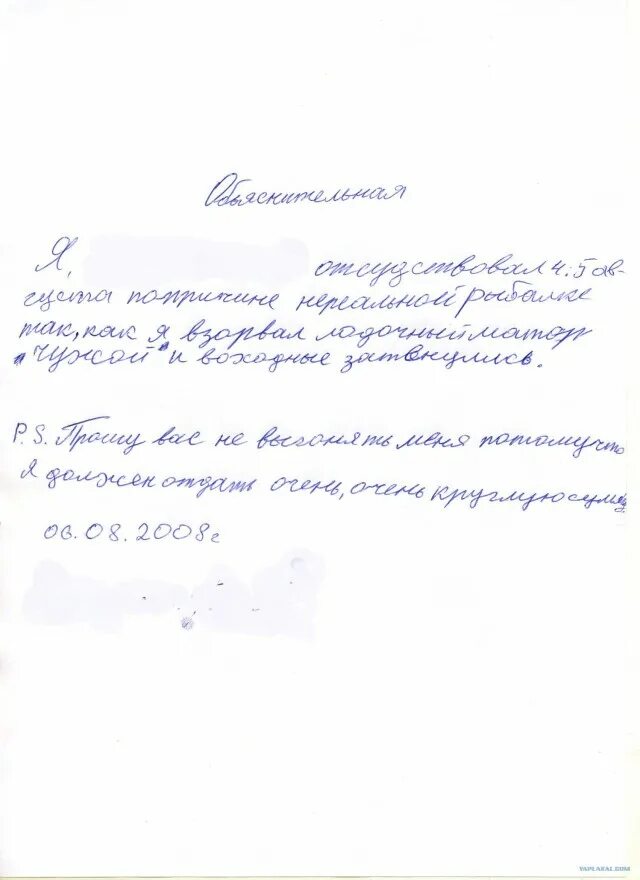 Обьяснительная
Я, отсудствовал 4:5 ав-
густа попричине нереальной рыбалке
так, как я взорвал лодочный матор
"Чужой" и воходные затянулись.
P.S. Прошу вас не выгонять меня потомучто
я должен отдать очень, очень круглую сумму.
06.08.2008г
YAPLAKAL.COM